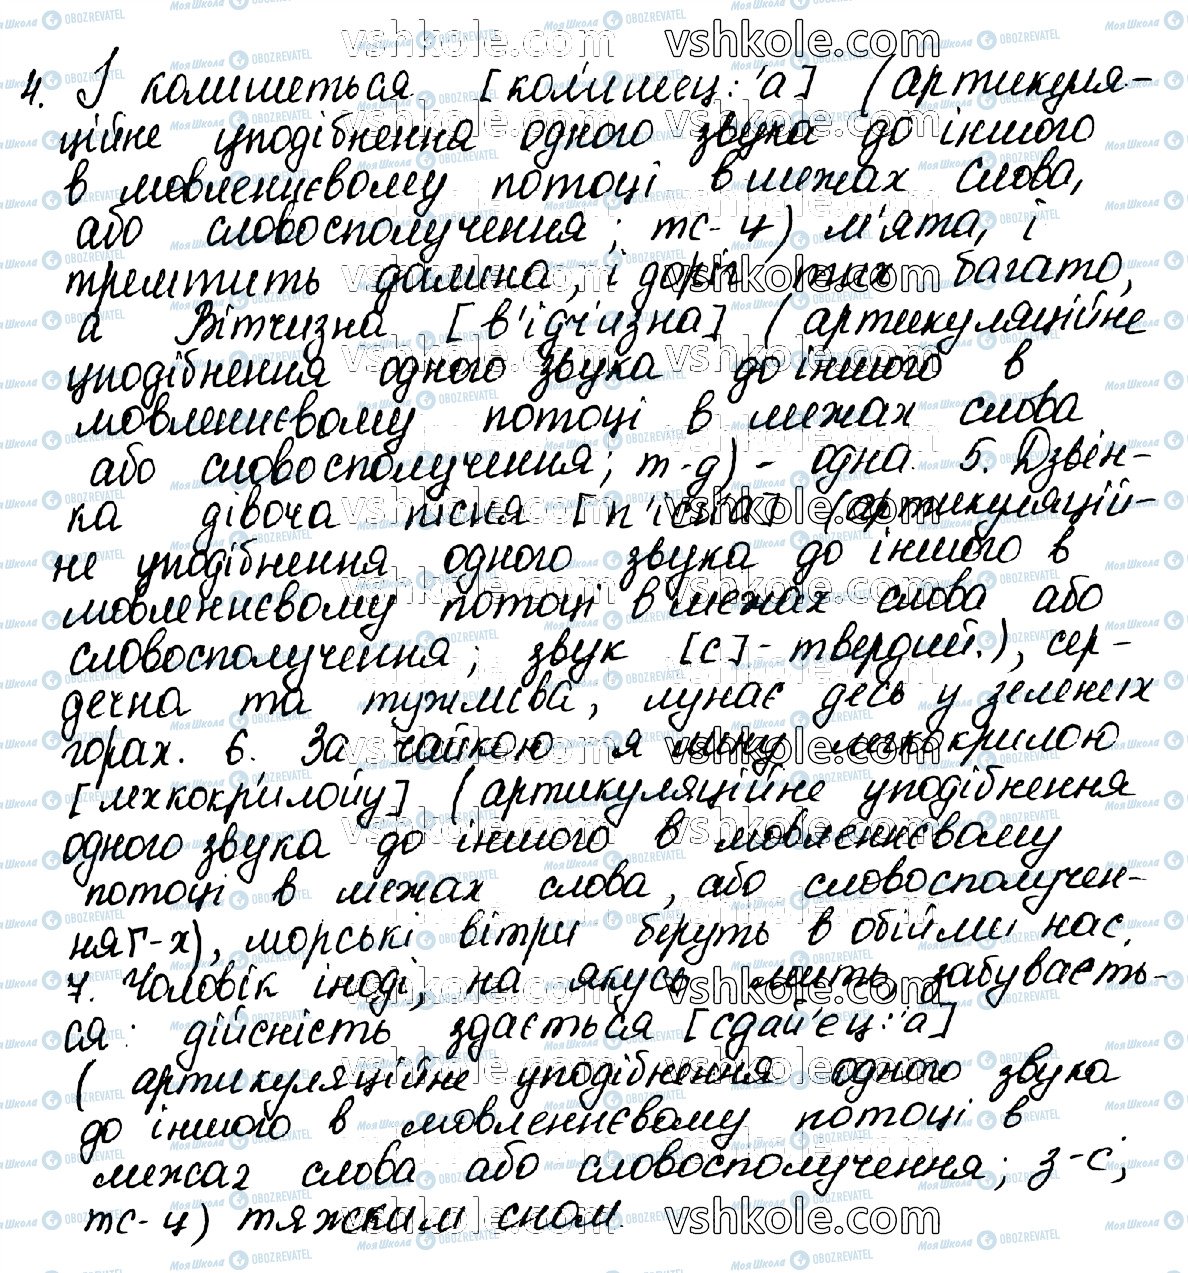 4. І колишеться [коли́шец:'а] (артикуля-
ційне уподібнення одного звука до іншого
в мовленнєвому потоці в межах слова,
або словосполучення; тс-ц) м'ята, і
тремтить долина, і доріг тих багато,
а Вітчизна [в'ідчи́зна] (артикуляційне
уподібнення одного звука до іншого в
мовленнєвому потоці в межах слова
або словосполучення; т-д) - одна. 5. Дзвін-
ка дівоча пісня [п'існа] (артикуляцій-
не уподібнення одного звука до іншого в
мовленнєвому потоці в межах слова або
словосполучення; звук [с]-твердий.), сер-
дечна та тужлива, лунає десь у зелених
горах. 6. За чайкою я лину легкокрилою
[лехкокри́лойу] (артикуляційне уподібнення
одного звука до іншого в мовленнєвому
потоці в межах слова, або словосполучен-
ня г-х), морські вітри беруть в обійми нас.
7. Чоловік іноді, на якусь мить, забуваєть-
ся: дійсність здається [сдай'ец:'а]
(артикуляційне уподібнення одного звука
до іншого в мовленнєвому потоці в
межах слова або словосполучення; з-с;
тс-ц) тяжким сном.
vshkole.com